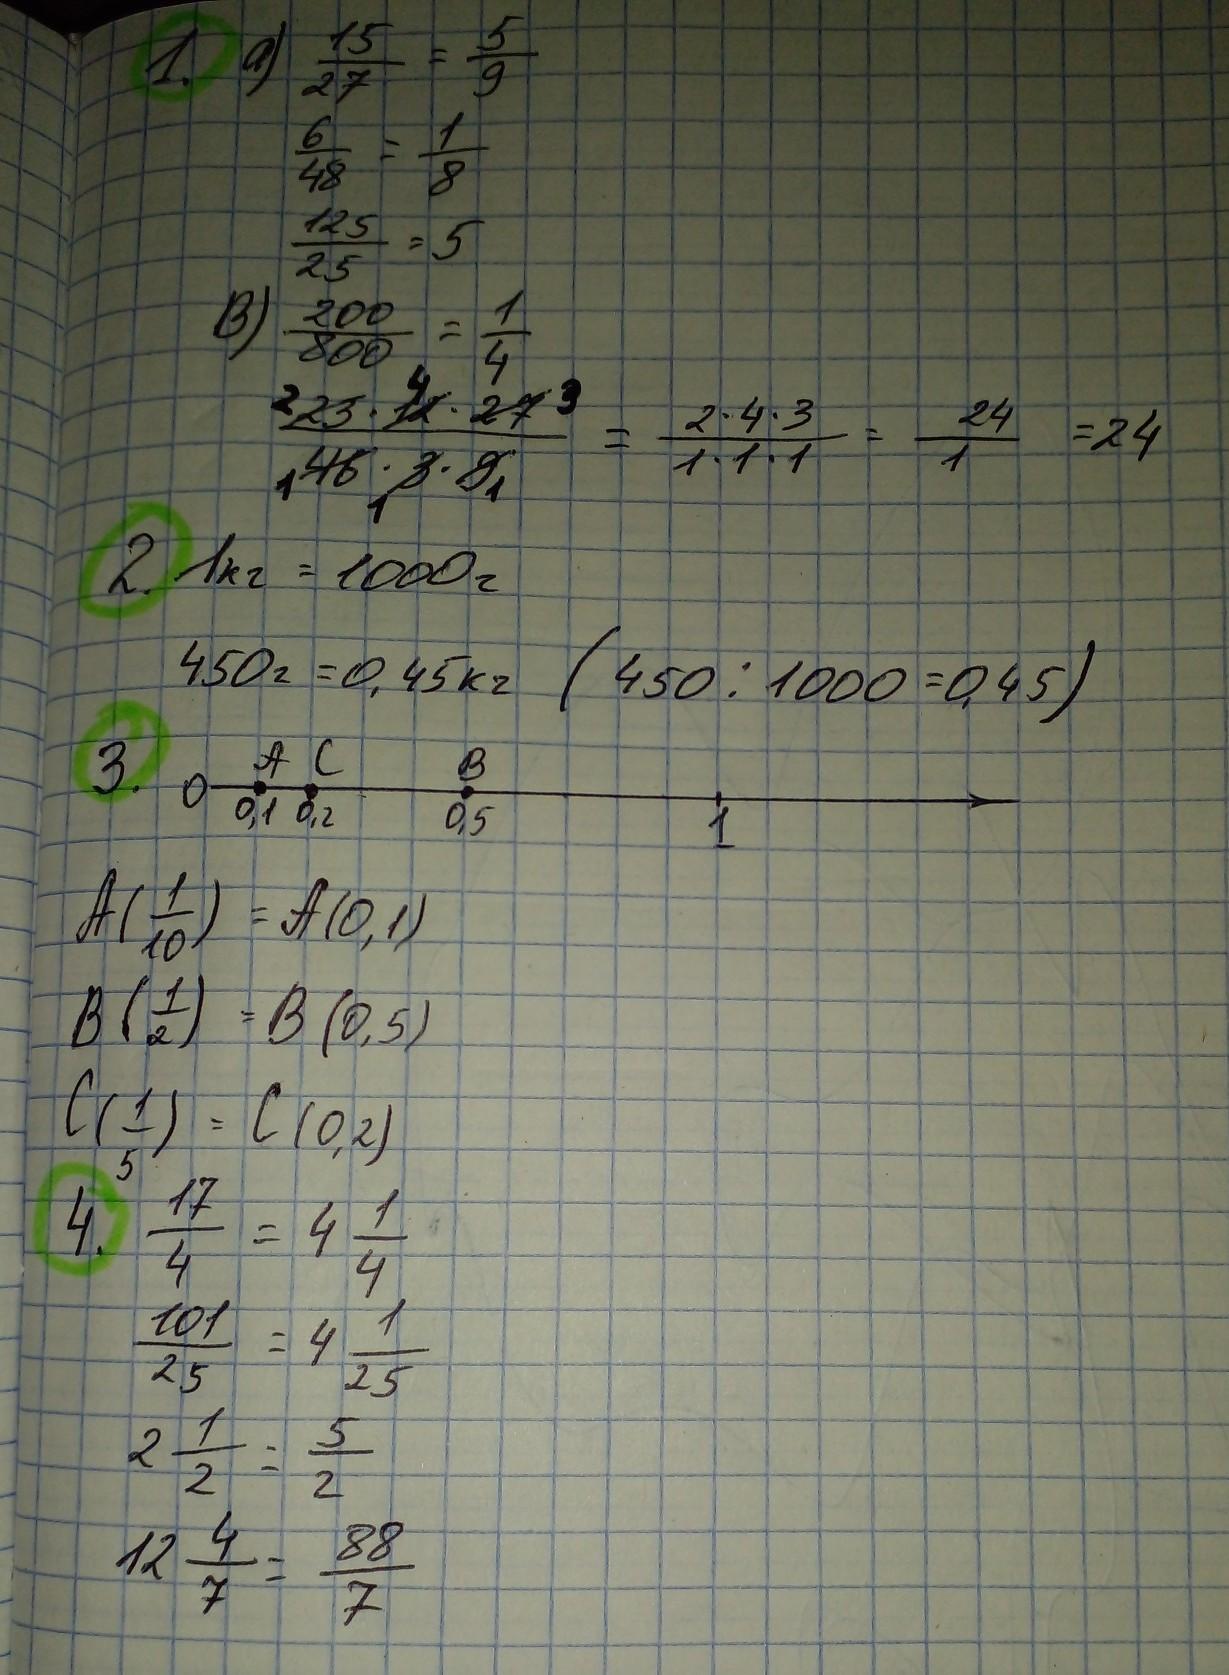 1. а) 15/27 = 5/9
6/48 = 1/8
125/25 = 5
В) 200/800 = 1/4
2 23 · 12 4 · 27 3 / 1 46 · 3 1 · 9 1 = 2·4·3 / 1·1·1 = 24/1 = 24
2. 1кг = 1000г
450г = 0,45кг (450 : 1000 = 0,45)
3. A C B
0 0,1 0,2 0,5 1
A(1/10) = A(0,1)
B(1/2) = B(0,5)
C(1/5) = C(0,2)
4. 17/4 = 4 1/4
101/25 = 4 1/25
2 1/2 = 5/2
12 4/7 = 88/7